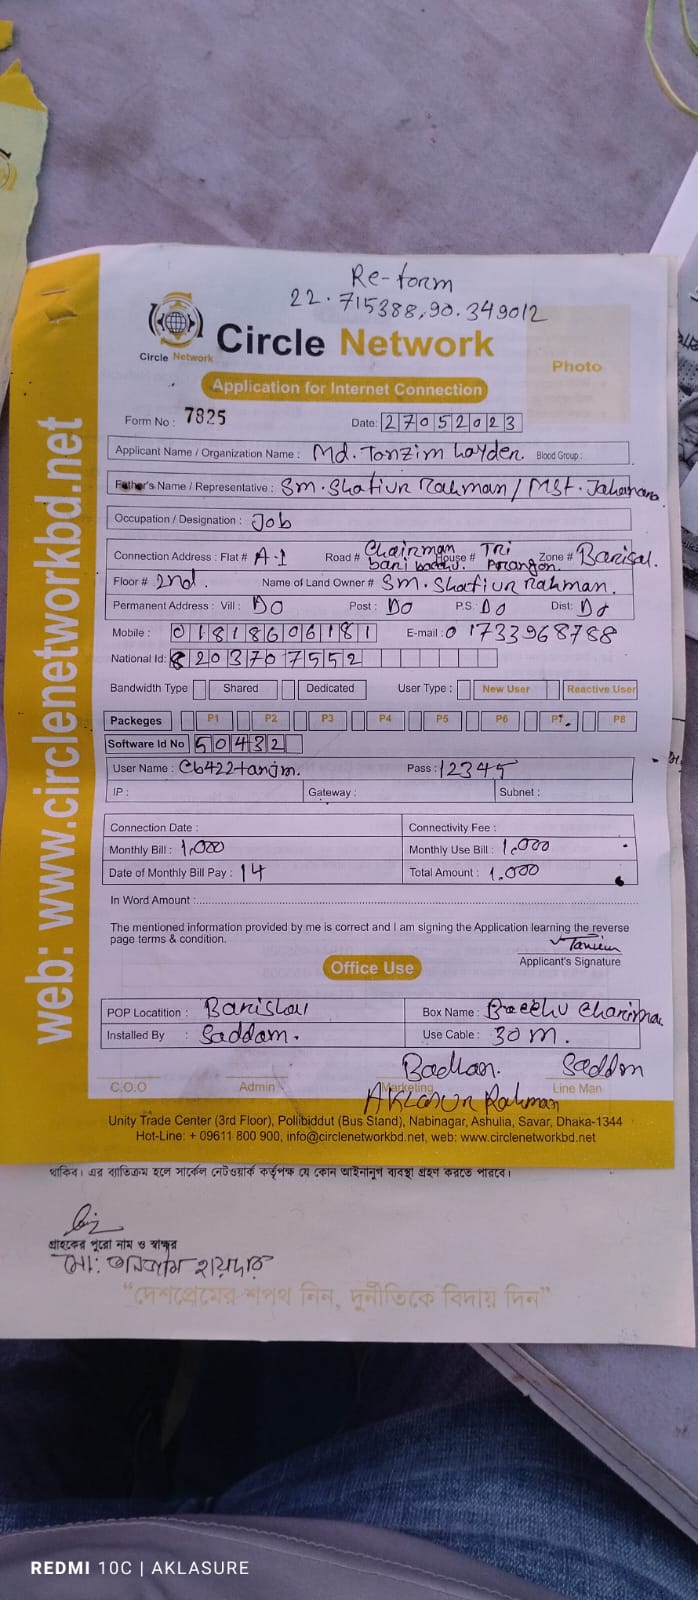 Re-form
22.715388,90.349012
Circle Network
Circle Network
Photo
Application for Internet Connection
Form No : 7825 Date: 27052023
Applicant Name / Organization Name : Md. Tanzim Hayder. Blood Group :
Father's Name / Representative : Sm. Shafiur Rahman / MSt. Jahanara
Occupation / Designation : Job
Connection Address : Flat # A-1 Road # Chairman bari House # Tri Zone # Barisal.
Floor # 2nd. Name of Land Owner # SM. Shafiur Rahman.
Permanent Address : Vill : DO Post : DO P.S. DO Dist: DO
Mobile : 01818606181 E-mail : 01733968788
National Id: 8203707552
Bandwidth Type Shared Dedicated User Type : New User Reactive User
Packeges P1 P2 P3 P4 P5 P6 P7 P8
Software Id No 50432
User Name : Cb422tanjm. Pass : 12345
IP : Gateway : Subnet :
Connection Date : Connectivity Fee :
Monthly Bill : 1,000 Monthly Use Bill : 1,000
Date of Monthly Bill Pay : 14 Total Amount : 1.000
In Word Amount :
The mentioned information provided by me is correct and I am signing the Application learning the reverse
page terms & condition.
Applicant's Signature
Office Use
POP Locatition : Barishal Box Name :
Installed By : Saddam. Use Cable : 30 m.
Badhan. Saddam
C.O.O Admin Marketing Line Man
Aklasur Rahman
Unity Trade Center (3rd Floor), Pollibiddut (Bus Stand), Nabinagar, Ashulia, Savar, Dhaka-1344
Hot-Line: + 09611 800 900, info@circlenetworkbd.net, web: www.circlenetworkbd.net
web: www.circlenetworkbd.net
থাকিব। এর ব্যতিক্রম হলে সার্কেল নেটওয়ার্ক কর্তৃপক্ষ যে কোন আইনানুগ ব্যবস্থা গ্রহণ করতে পারবে।
গ্রাহকের পুরো নাম ও স্বাক্ষর
মো: তানজিম হায়দার
“দেশপ্রেমের শপথ নিন, দুর্নীতিকে বিদায় দিন”
REDMI 10C | AKLASURE